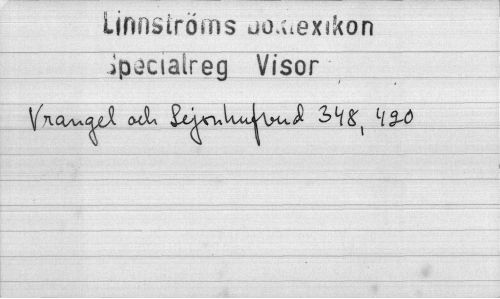 Linnströms Boklexikon
Specialreg Visor
Vrangel och Lejonhufvud 348, 420